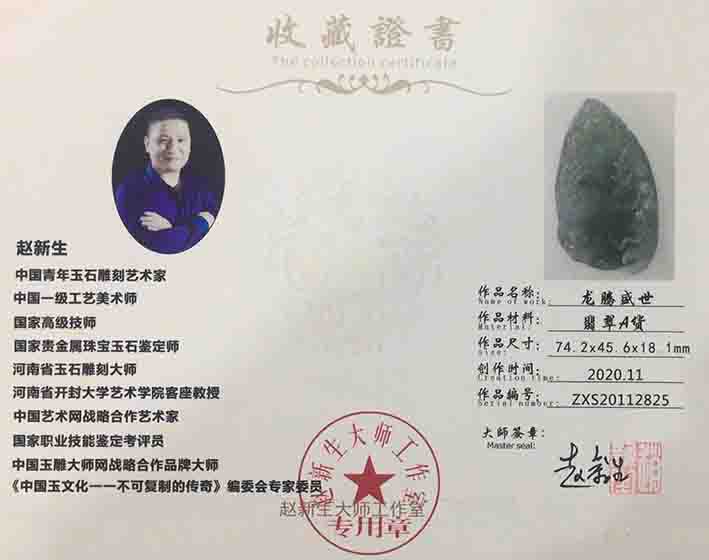 收藏證書
The collection certificate
赵新生
中国青年玉石雕刻艺术家
中国一级工艺美术师
国家高级技师
国家贵金属珠宝玉石鉴定师
河南省玉石雕刻大师
河南省开封大学艺术学院客座教授
中国艺术网战略合作艺术家
国家职业技能鉴定考评员
中国玉雕大师网战略合作品牌大师
《中国玉文化一一不可复制的传奇》编委会专家委员
作品名称: 龙腾盛世
Name of work:
作品材料: 翡翠A货
Material:
作品尺寸: 74.2x45.6x18.1mm
Size:
创作时间: 2020.11
Creation time:
作品编号: ZXS20112825
Serial number:
大师签章:
Master seal:
赵新生
赵新生大师工作室
专用章
赵新生大师工作室